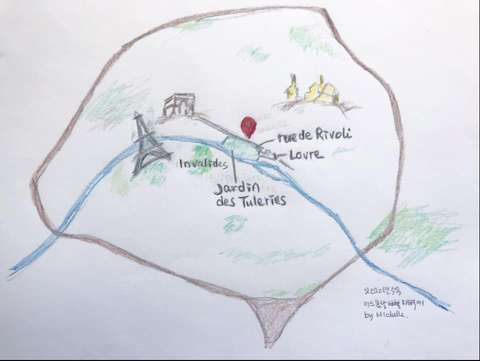 rue de Rivoli
Lovre
Invalides
Jardin
des Tuleries
by Michelle.